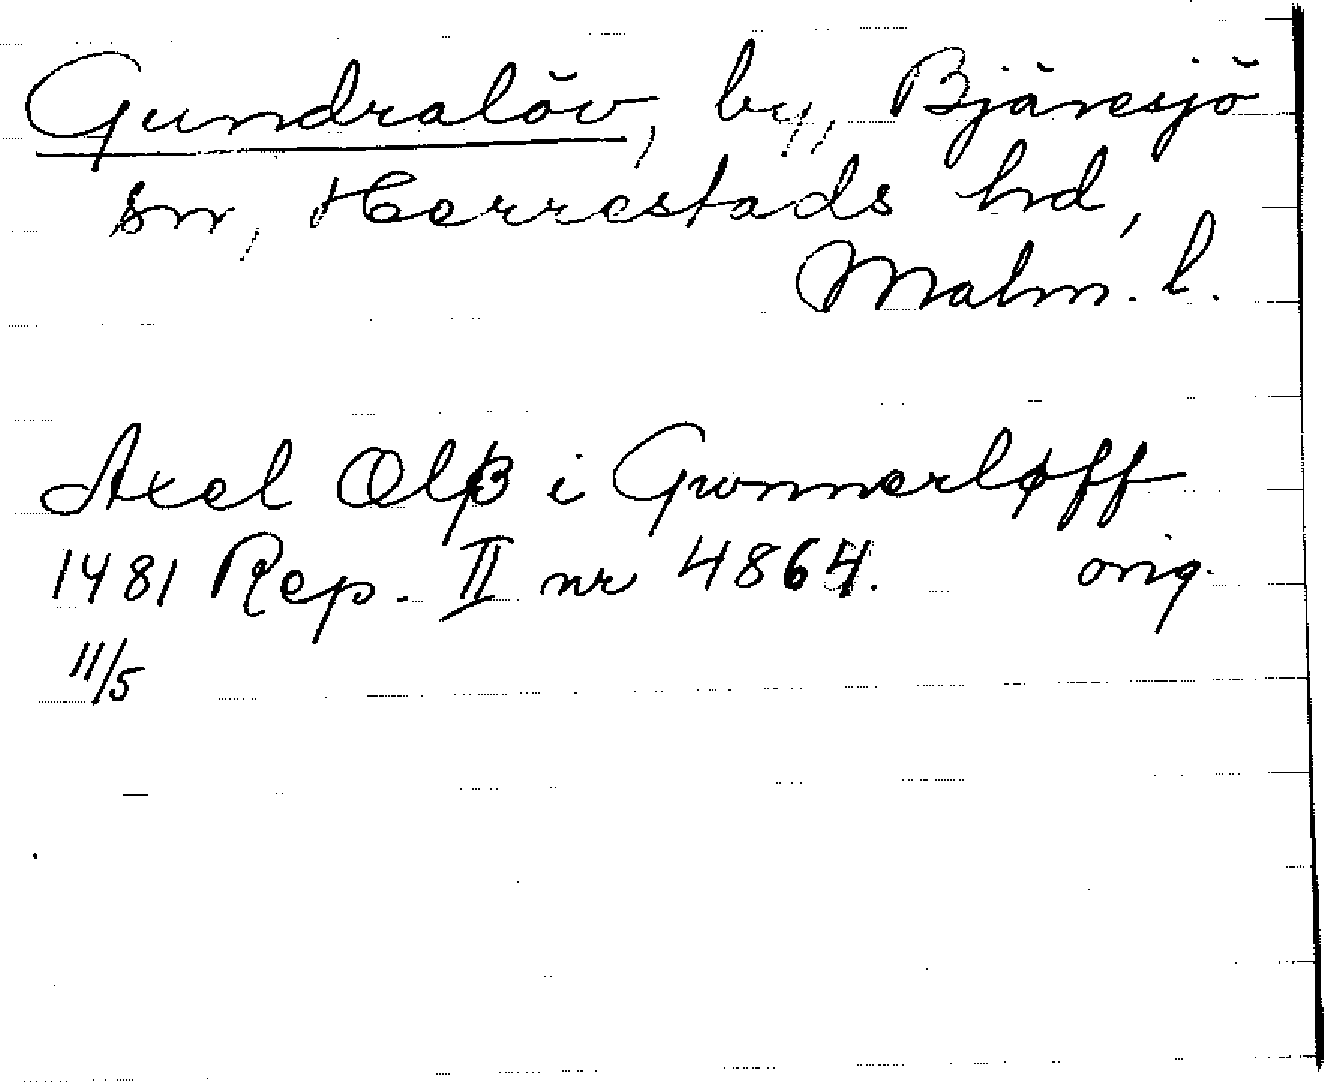 Gundralöv, by, Bjäresjö
sn, Herrestads hd,
Malm. l.
Axel Olß i Gunnerløff
1481 Rep. II nr 4864. orig.
11/5